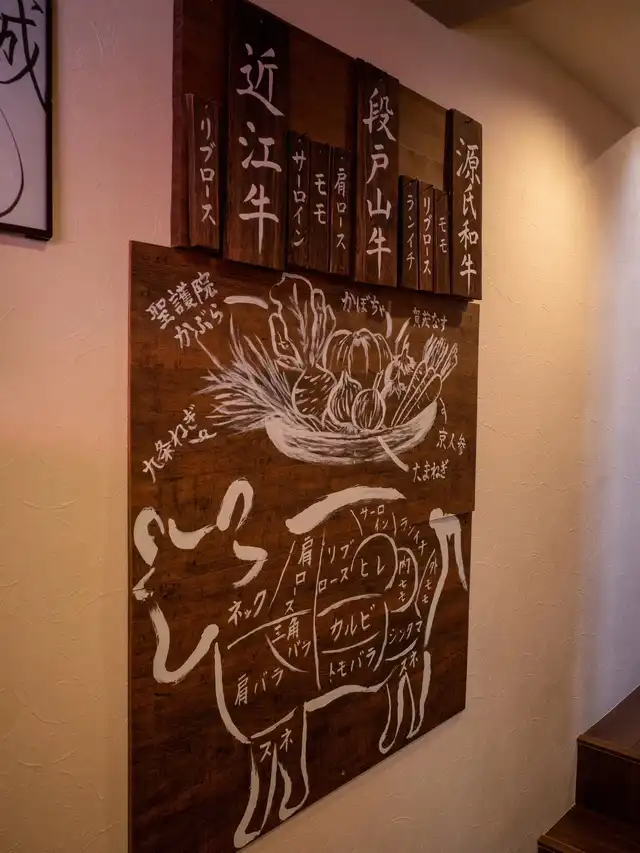 成
源氏和牛
モモ
リブロース
ランイチ
段戸山牛
肩ロース
モモ
サーロイン
近江牛
リブロース
聖護院
かぶら
かぼちゃ
賀茂なす
九条ねぎ
京人参
たまねぎ
ネック
肩ロース
リブ
ロース
サーロ
イン
ランイチ
ヒレ
内モモ
外モモ
三角
バラ
カルビ
シンタマ
肩バラ
トモバラ
スネ
スネ